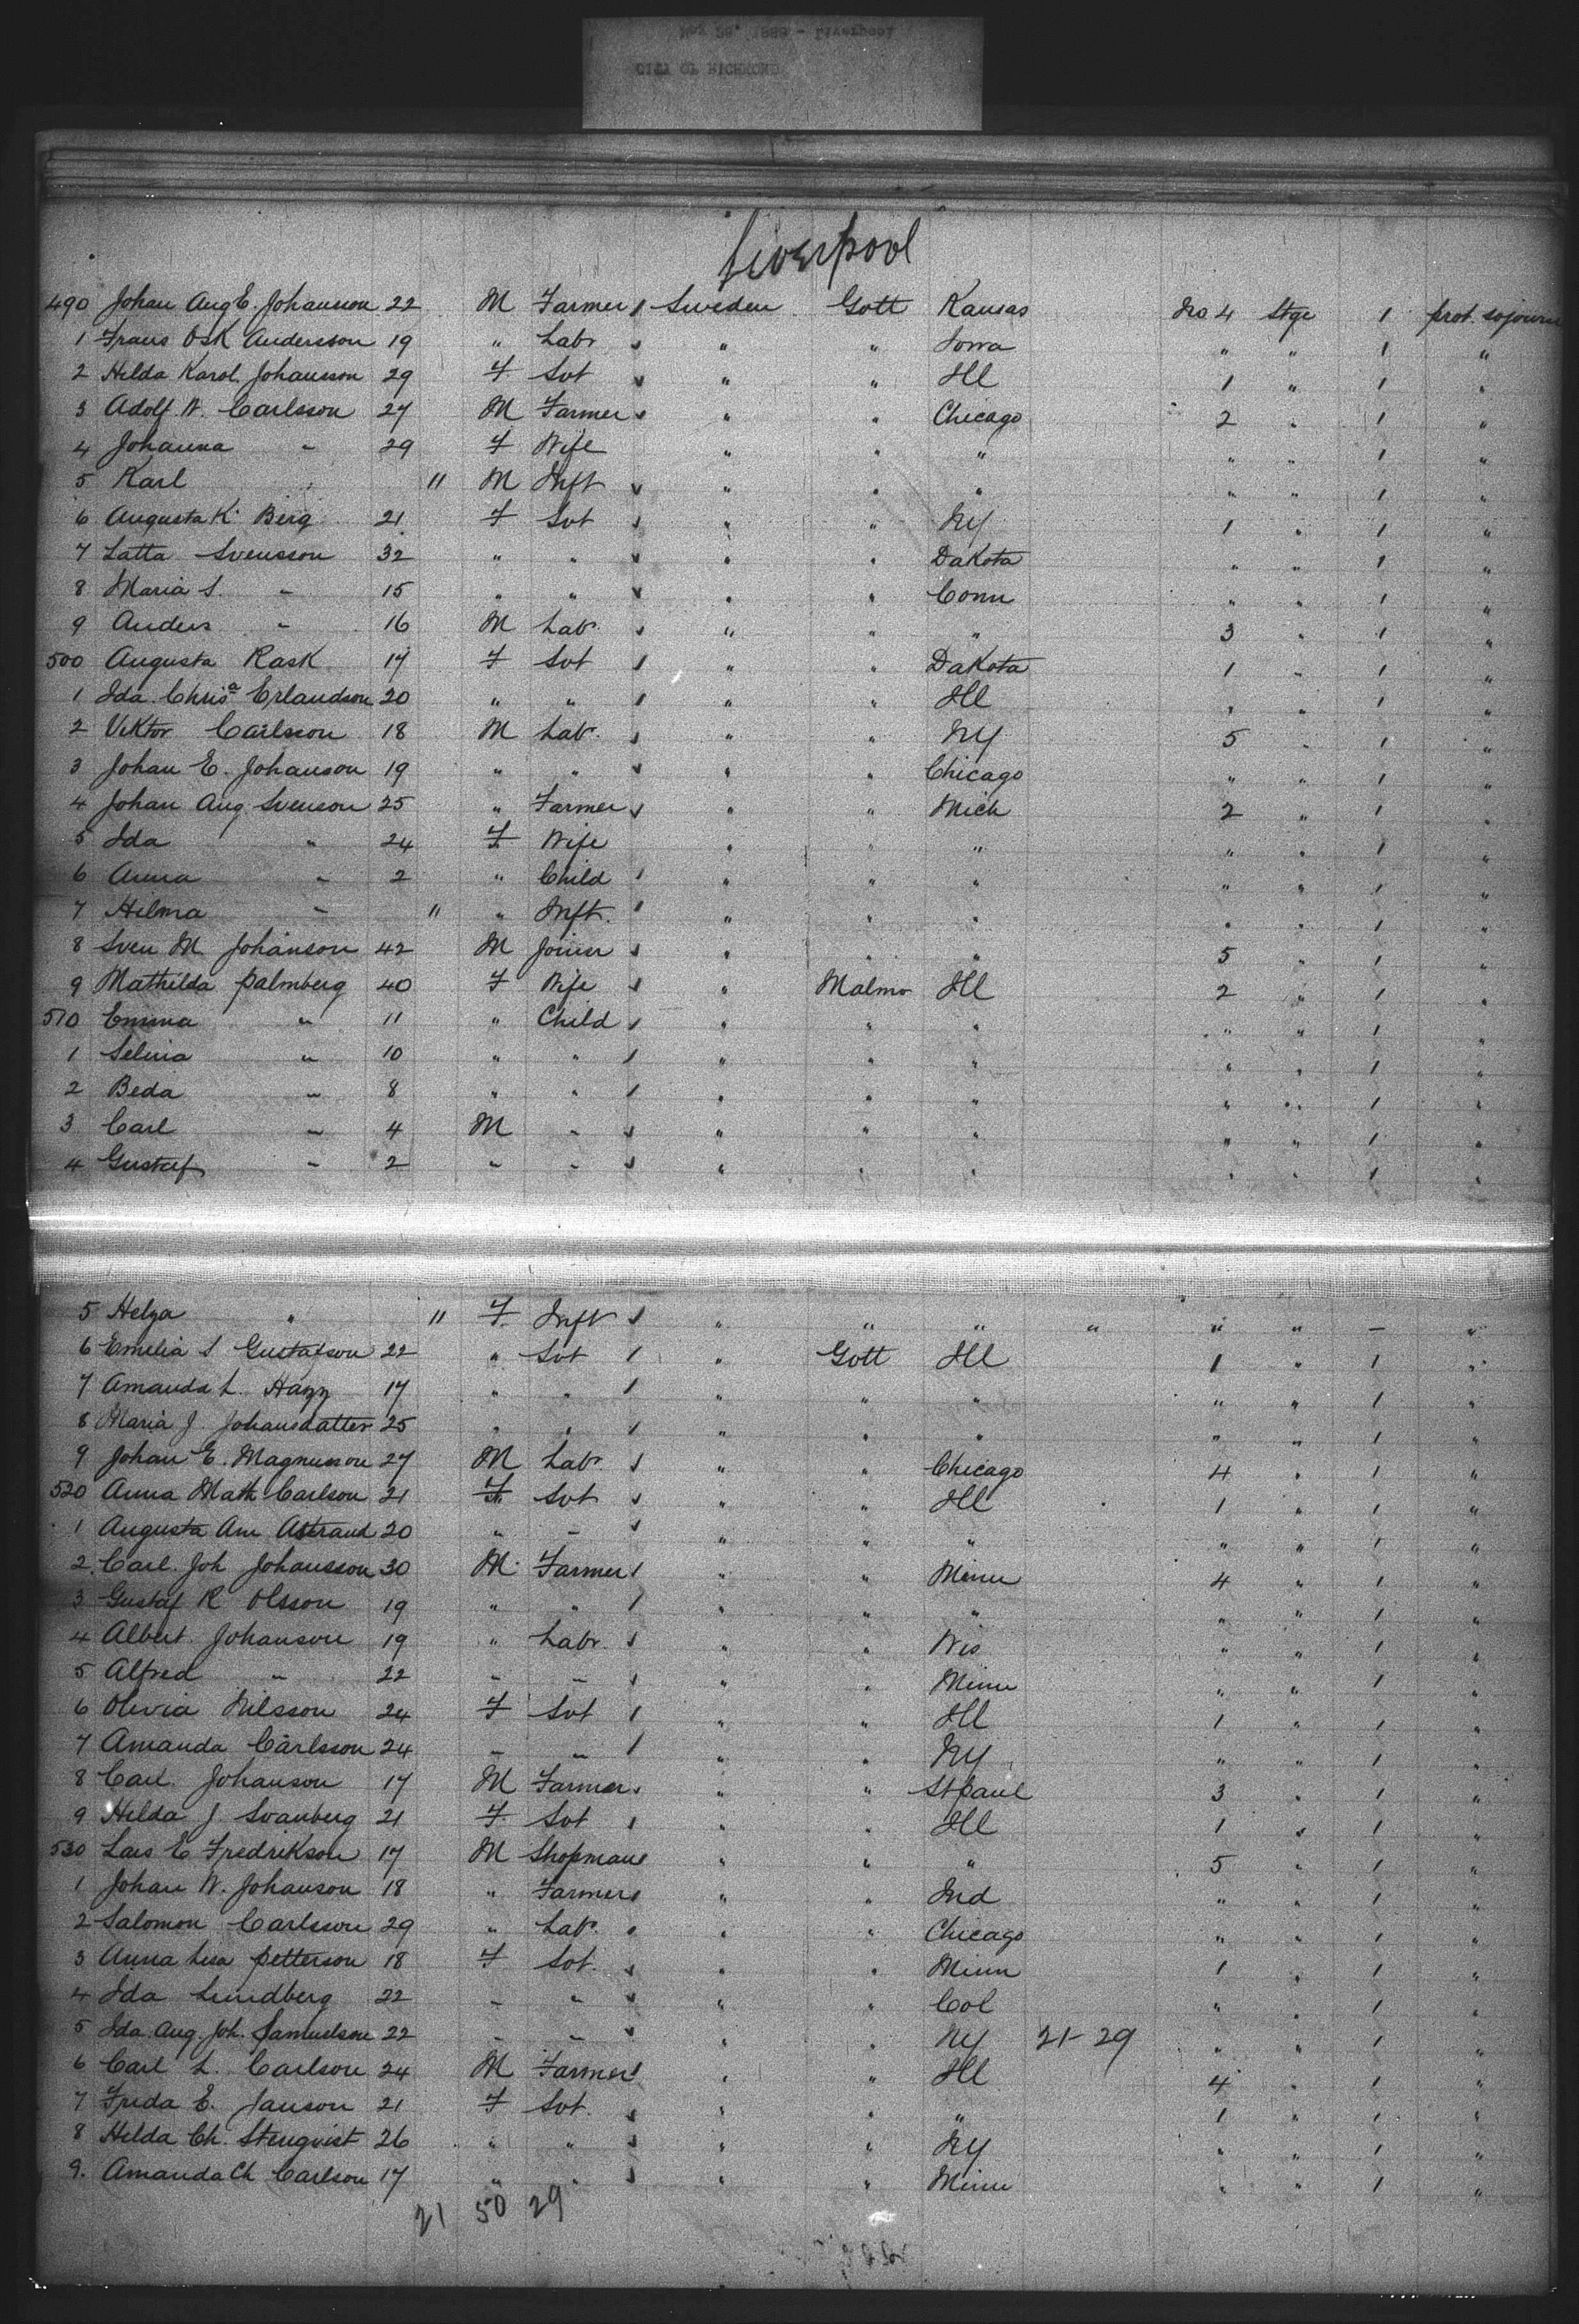 May 29, 1889 - Liverpool
CITY OF RICHMOND
Liverpool
490 Johan Aug E. Johansson 22 M Farmer Sweden Gott Kansas No 4 Stge 1 prot. sojourn
1 Frans Osk Andersson 19 " Labr " " Iowa " " 1 "
2 Hilda Karol. Johansson 29 F Svt " " Ill 1 " 1 "
3 Adolf W. Carlsson 27 M Farmer " " Chicago 2 " 1 "
4 Johanna " 29 F Wife " " " " " 1 "
5 Karl " 11 M Inft " " " " " 1 "
6 Augusta K. Berg 21 F Svt " " NY 1 " 1 "
7 Latta Svensson 32 " " " " Dakota " " 1 "
8 Maria S. " 15 " " " " Conn " " 1 "
9 Anders " 16 M Labr " " " 3 " 1 "
500 Augusta Rask 17 F Svt " " Dakota 1 " 1 "
1 Ida Chrisa Erlandson 20 " " " " Ill " " 1 "
2 Viktor Carlsson 18 M Labr. " " NY 5 " 1 "
3 Johan E. Johanson 19 " " " " Chicago " " 1 "
4 Johan Aug Svenson 25 " Farmer " " Mich 2 " 1 "
5 Ida " 24 F Wife " " " " " 1 "
6 Anna " 2 " Child " " " " " 1 "
7 Hilma " 11 " Inft. " " " " " 1 "
8 Sven M Johanson 42 M Joiner " " " 5 " 1 "
9 Mathilda Palmberg 40 F Wife " Malmo Ill 2 " 1 "
510 Emma " 11 " Child " " " " " 1 "
1 Selma " 10 " " " " " " " 1 "
2 Beda " 8 " " " " " " " 1 "
3 Carl " 4 M " " " " " " 1 "
4 Gustaf " 2 " " " " " " " 1 "
5 Helga " 11 F Inft " " " " " " — "
6 Emelia S Gustafson 22 " Svt " Gott Ill 1 " 1 "
7 Amanda L. 17 " " " " " " " 1 "
8 Maria J. Johansdatter 25 " " " " " " " 1 "
9 Johan E. Magnusson 27 M Labr " " Chicago 4 " 1 "
520 Anna Math Carlson 21 F Svt " " Ill 1 " 1 "
1 Augusta Am Astrand 20 " " " " " " " 1 "
2 Carl Joh Johansson 30 M Farmer " " Minn 4 " 1 "
3 Gustaf R Olsson 19 " " " " " " " 1 "
4 Albert Johanson 19 " Labr. " " Wis " " 1 "
5 Alfred " 22 " " " " Minn " " 1 "
6 Olivia Nilsson 24 F Svt " " Ill 1 " 1 "
7 Amanda Carlsson 24 " " " " NY " " 1 "
8 Carl Johanson 17 M Farmer " " St Paul 3 " 1 "
9 Hilda J Svanberg 21 F Svt " " Ill 1 " 1 "
530 Lars E Fredrikson 17 M Shopman " " " 5 " 1 "
1 Johan W. Johanson 18 " Farmer " " Ind " " 1 "
2 Salomon Carlsson 29 " Labr. " " Chicago " " 1 "
3 Anna Lisa Petterson 18 F Svt. " " Minn 1 " 1 "
4 Ida Lundberg 22 " " " " Col " " 1 "
5 Ida Aug. Joh. Samuelson 22 " " " " NY 21-29 " " 1 "
6 Carl L. Carlson 24 M Farmer " " Ill 4 " 1 "
7 Frida E. Janson 21 F Svt. " " " 1 " 1 "
8 Hilda Ch. Stenqvist 26 " " " " NY " " 1 "
9. Amanda Ch Carlson 17 " " " " Minn " " 1 "
21 50 29